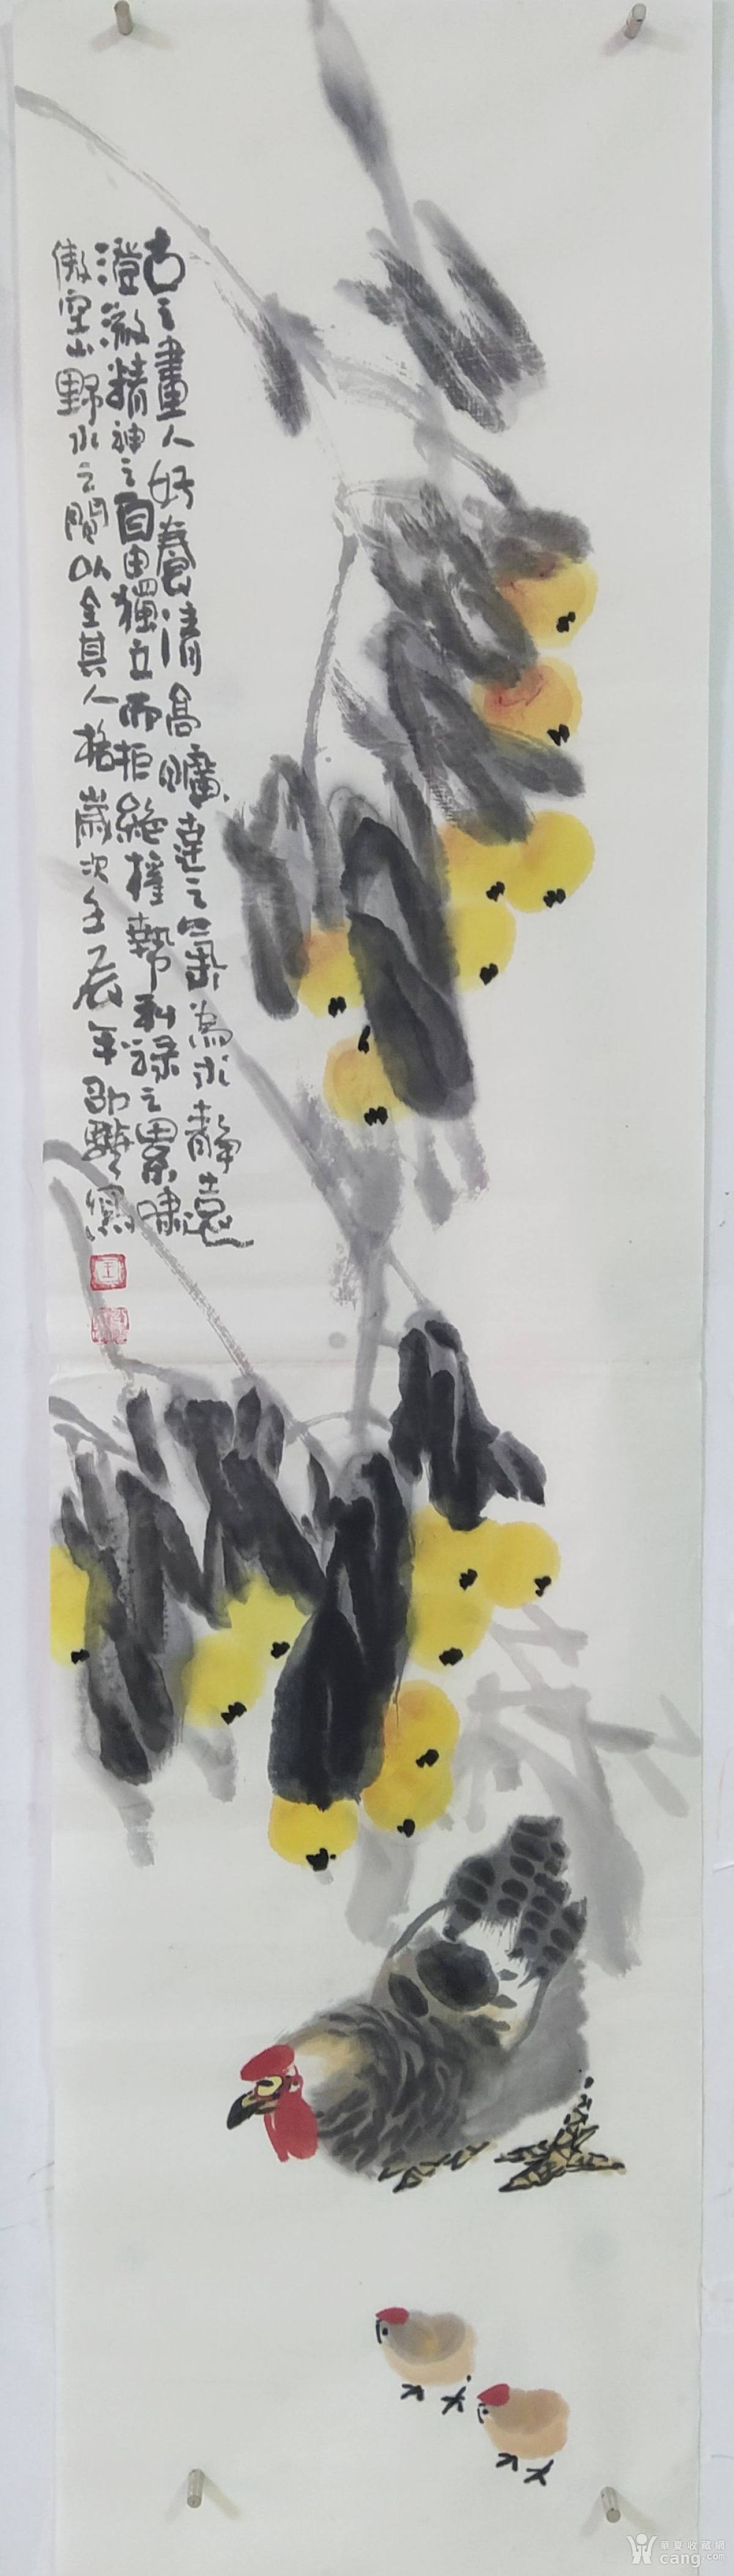 古之畫人好養清高曠達之氣為求靜遠
澄澈精神之自由獨立而拒絕權勢利祿之累嘯
傲空山野水之間以全其人格歲次壬辰年邵 寫
華夏收藏網
cang.com